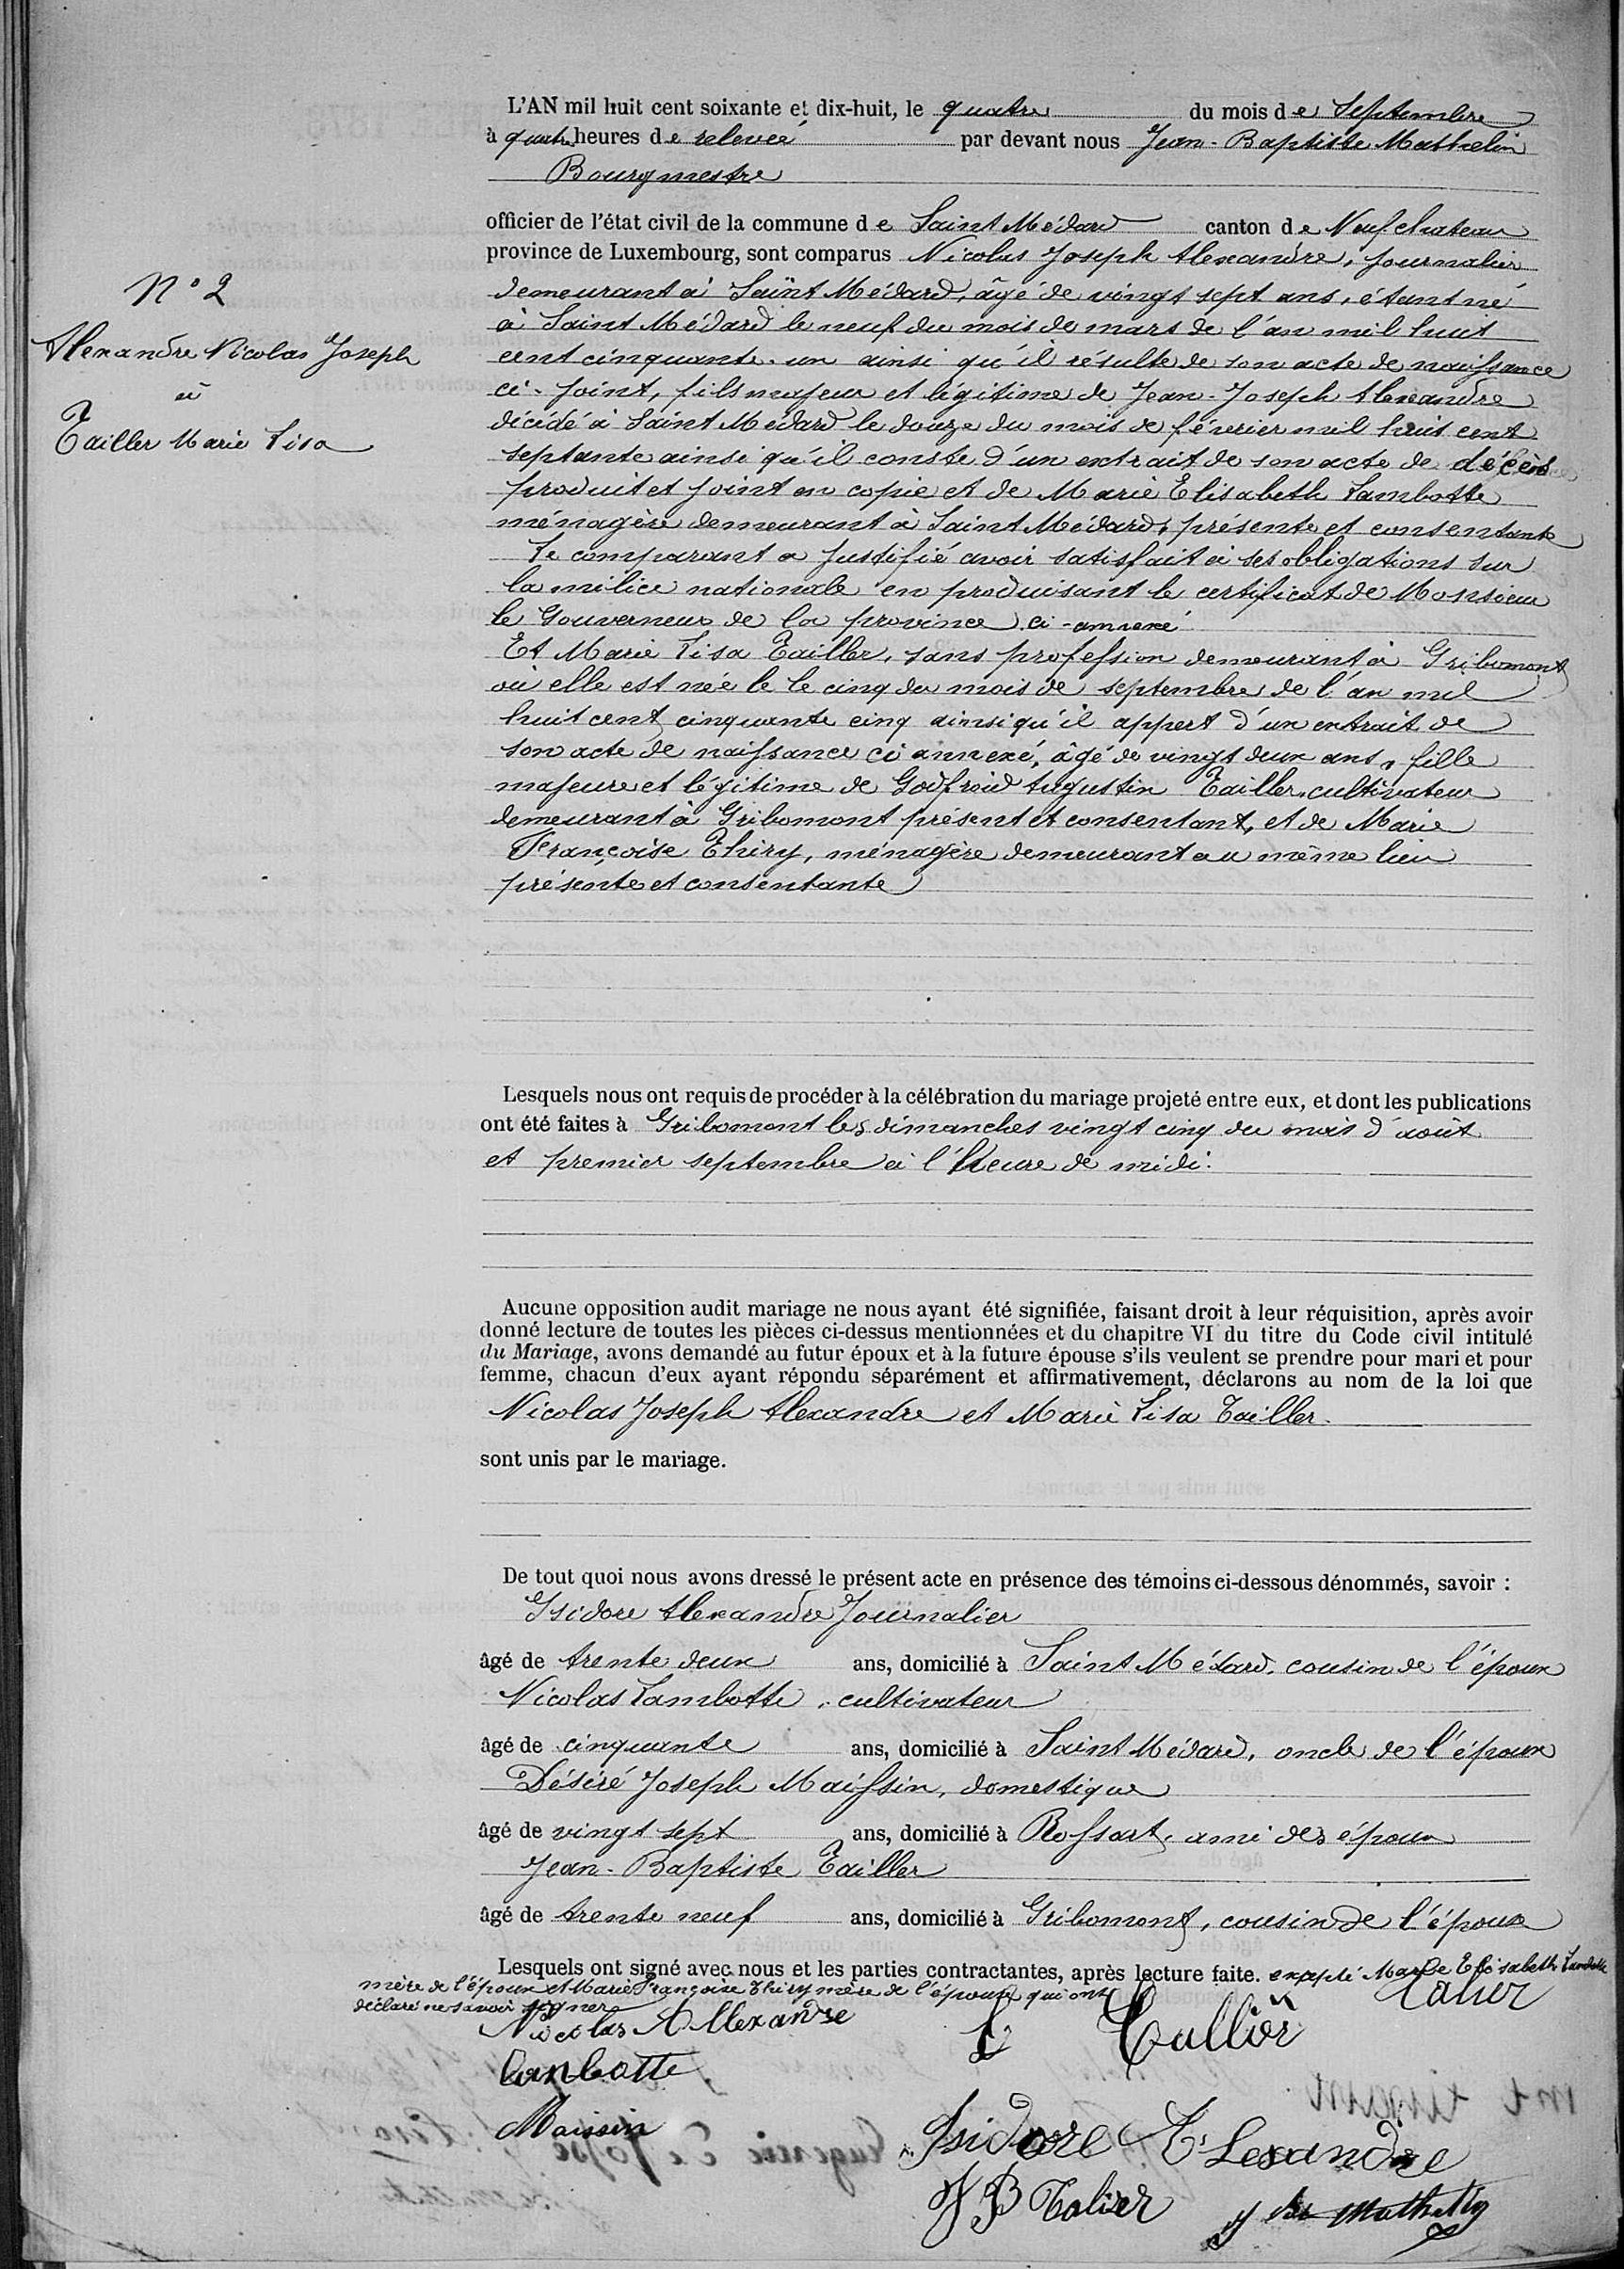 L'AN mil huit cent soixante et dix-huit, le quatre du mois de Septembre
à quatre heures de relevée par devant nous Jean-Baptiste Mathelin
Bourgmestre
officier de l'état civil de la commune de Saint Médard canton de Neufchateau
province de Luxembourg, sont comparus Nicolas Joseph Alexandre, journalier
demeurant à Saint Médard, âgé de vingt sept ans, étant né
à Saint Médard le neuf du mois de mars de l'an mil huit
cent cinquante-un ainsi qu'il résulte de son acte de naissance
ci-joint, fils majeur et légitime de Jean-Joseph Alexandre
décédé à Saint Médard le douze du mois de février mil huit cent
septante ainsi qu'il conste d'un extrait de son acte de décès
produit et joint en copie et de Marie Elisabeth Lambotte
ménagère demeurant à Saint Médard, présente et consentante
Le comparant a justifié avoir satisfait à ses obligations sur
la milice nationale en produisant le certificat de Monsieur
le Gouverneur de la province ci-annexé
Et Marie Lisa Tailler, sans profession demeurant à Gribomont
où elle est née le le cinq du mois de septembre de l'an mil
huit cent cinquante cinq ainsi qu'il appert d'un extrait de
son acte de naissance ci annexé, âgé de vingt deux ans, fille
majeure et légitime de Godfroid Augustin Tailler, cultivateur
demeurant à Gribomont présent et consentant, et de Marie
Françoise Thiry, ménagère demeurant au même lieu
présente et consentante
N° 2
Alexandre Nicolas Joseph
à
Tailler Marie Lisa
Lesquels nous ont requis de procéder à la célébration du mariage projeté entre eux, et dont les publications
ont été faites à Gribomont les dimanches vingt cinq du mois d'aout
et premier septembre à l'heure de midi.
Aucune opposition audit mariage ne nous ayant été signifiée, faisant droit à leur réquisition, après avoir
donné lecture de toutes les pièces ci-dessus mentionnées et du chapitre VI du titre du Code civil intitulé
du Mariage, avons demandé au futur époux et à la future épouse s'ils veulent se prendre pour mari et pour
femme, chacun d'eux ayant répondu séparément et affirmativement, déclarons au nom de la loi que
Nicolas Joseph Alexandre et Marie Lisa Tailler.
sont unis par le mariage.
De tout quoi nous avons dressé le présent acte en présence des témoins ci-dessous dénommés, savoir :
Isidore Alexandre Journalier
âgé de trente deux ans, domicilié à Saint Médard, cousin de l'époux
Nicolas Lambotte, cultivateur
âgé de cinquante ans, domicilié à Saint Médard, oncle de l'époux
Désiré Joseph Maissin, domestique
âgé de vingt sept ans, domicilié à Rossart, ami des époux
Jean-Baptiste Tailler
âgé de trente neuf ans, domicilié à Gribomont, cousin de l'épouse
Lesquels ont signé avec nous et les parties contractantes, après lecture faite. excepté Marie Elisabeth Lambotte
mère de l'époux et Marie Françoise Thiry mère de l'épouse qui ont
déclaré ne savoir signer
Nicolas Allexandre
Lanbotte
Maissin
Isidore Alexandre
J B Talier